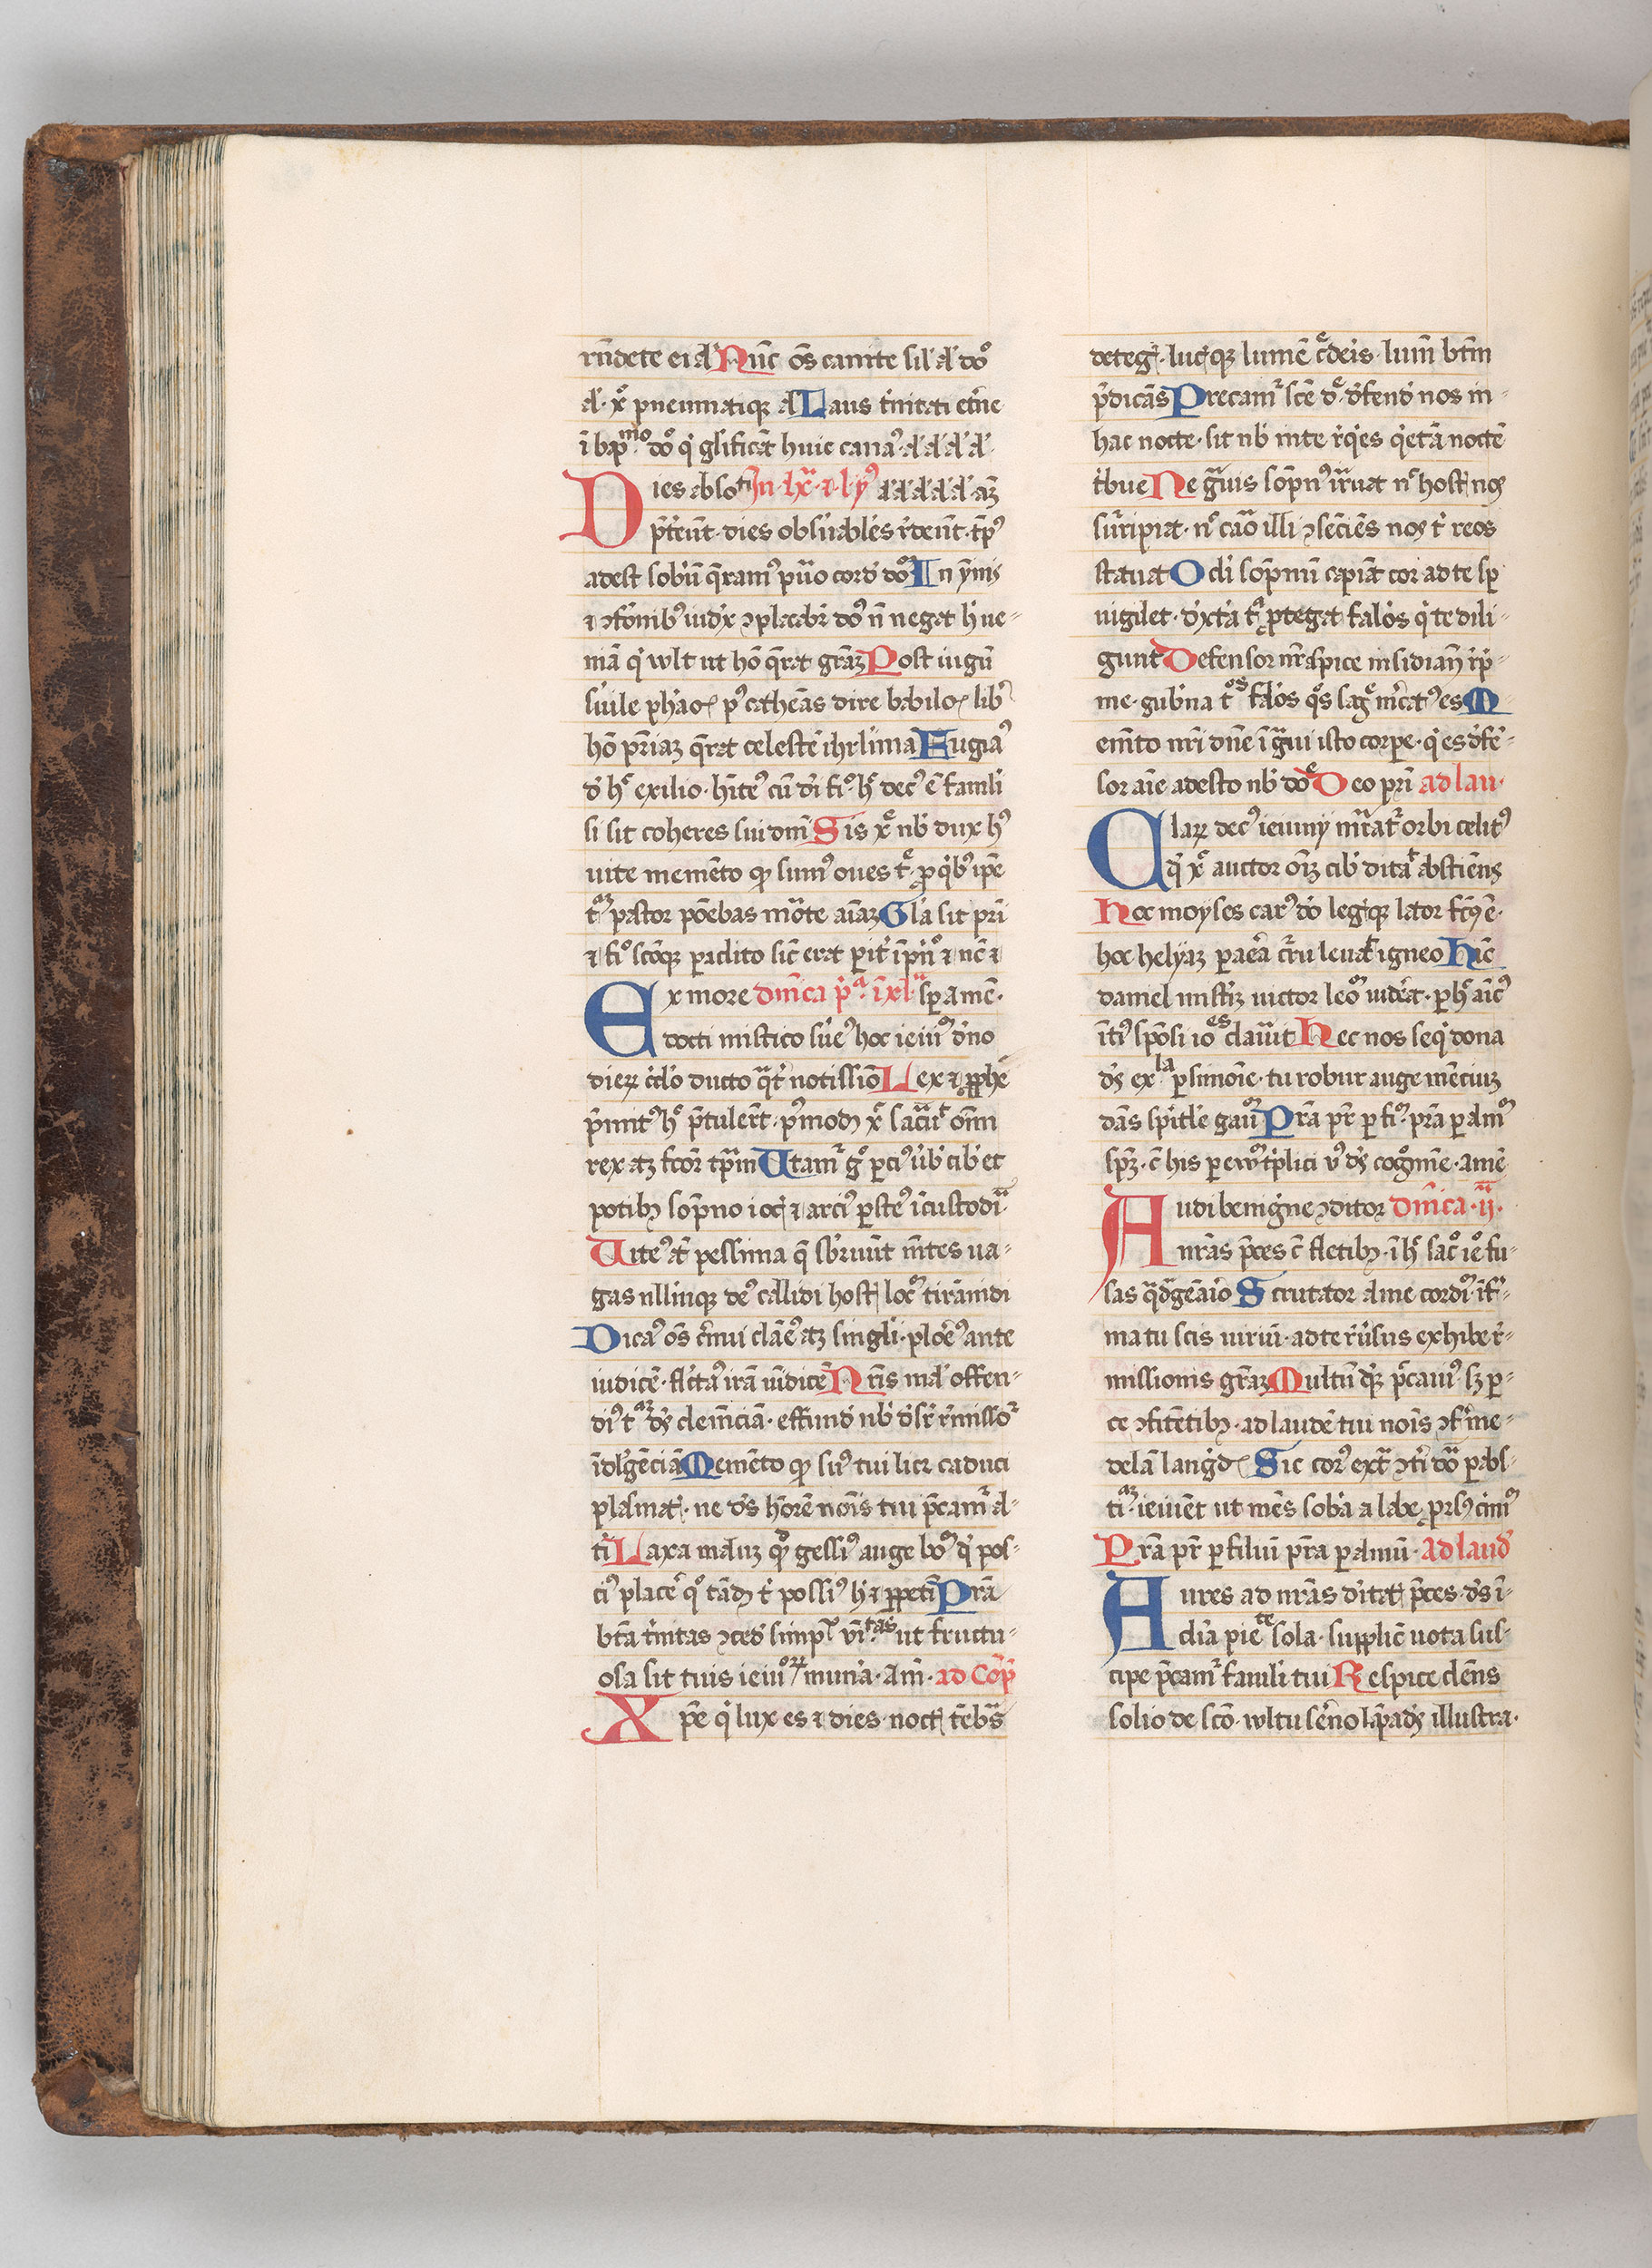 rñdete ei al̄ Nūc oēs canite sil̄ al̄ do͂
al̄ · xͦ pneumatiq; al̄ Laus t̄nitati et̄ne
ī bap̄mo doͦ q̇ gl̄ificāt huic cana᷒ · al̄ al̄ al̄ al̄
Dies absoti In · lxͣ · ⁊ · l · y᷒ al̄ al̄ al̄ al̄ al̄ aꝫ
p̄t̄eūt · dies obs̄uabl̄es r̄deūt · tp̄᷒
adest sobū q̄ram᷒ puͦo cord̄ do͂ In ym̄is
⁊ ꝯfōnib᷒ iud̄x ꝯplacab̄r do᷒ n̄ negat h̄ ue-
niā q̇ wlt ut hō q̄rat gr̄aꝫ Post iugū
s̄uile ph̄ao p᷒ cathēas dire babilo lib̄
hō pr̄iaꝫ q̄rat celestē ih̄rl̄ima Fugia᷒
d̄ hͦ exilio · h̄ite᷒ cū d̄i fiͦ · hͦ dec᷒ ē famūl̄i
si sit coheres sui dn̄i Sis xͤ nb̄ dux h᷒
uite memēto ꝙ sum᷒ oues tͤ · ꝓ q̇b᷒ ip̄e
tͣꝫ pastor pōebas mͦte aīaꝫ Gl̄a sit pr̄i
⁊ fiͦ scōq; paclito sic̄ erat pit̄ īp̄nͦ ⁊ nc̄ ⁊
Ex more dn̄ica p̄ͣ · īxlͣ sp amē ·
docti mistico s̄ue᷒ hoc ieiuͫ d̄no
dieꝝ c̄cl̄o ducto qͣt̄ notissiō Lex ⁊ ꝓph̄e
p̄mit᷒ hͦ p̄tulert̄ · p᷒modꝫ xͤ sacͣuͭ om̄i
rex atꝫ fcōr tp̄rm Utamͬ gͦ pci᷒ ūb̄ cib̄ et
potibꝫ sōpno ioc̄ ⁊ arci᷒ pste᷒ īcustodīͣ
Uite᷒ aͭ pessima q̄ sb̄ruūt m̄tes ua-
gas nllūq; de᷒ callidi host locͫ tirānidi
Dica᷒ oēs c̄nui clāe᷒ atꝫ singl̄i · ploe᷒ ante
iudicē · flcta᷒ irā uīdicē Nr̄is mal̄ offen-
di᷒ tͣꝫ ds̄ clem̄ciā · effund̄ nb̄ d̄sr̄ r̄missōͬ
īdl̄gēciā Memēto ꝙ su᷒ tui licꝫ caduci
plasmat̄ · ne ds̄ h̄orē nōis tui p̄camͬ al-
t̄i Laxa malūꝫ qͦ gessi᷒ auge boͫ q̇ pos-
ci᷒ placēͤ qͦ tādꝫ t̄ possi᷒ h̄ ⁊ ꝑpetī Prā
btā t̄nitas ꝯced̄ simpͣ uītas ut fructu-
osa sit tuis ieiuͦꝝ mun̄a · am̄ · ad Cōp̄
Xpē q̇ lux es ⁊ dies · noct̄ tēbͣs
deteg̊ · luc̄q; lumē cͤdeis · lum̄ btm̄
p̄dicās Precamͬ scē dͤ · d̄fend̄ nos in-
hac nocte · sit nb̄ inte r̄q̇es q̇etā noctē
t̄bue Ne gͣuis sōpn᷒ irͣuat nͦ host nos
sur̄ripiat · nͦ caͦo illi ꝯsēciēs nos t̄ reos
statuat Ocl̄i sōpnū capiāt cor ad te sp
uigilet · d̄xt̄a tͣ ptegat fal̄os q̇ te dili-
gunt Defensor nr̄ aspice insidiāꝫ r̄p̄-
me · gubn̄a tͦs fal̄os q̄s sāgͤ m̄cat᷒ es M
emēto nr̄i dn̄e ī gͣui isto corpe · q̇ es d̄fē-
sor aīe adesto nb̄ doͤ Deo pr̄i ad lau ·
Claꝝ dec᷒ ieiunij mr̄atͬ orbi celit᷒
q̄ xͤ auctor oīꝫ cib̄ ditͣ abstiēns
Hoc moyses car᷒ do leg̊q; lator fc̄᷒ ē ·
hoc helyāꝫ paera c̄rru leuāt igneo Hīc
daniel mist̄ꝫ uictor leōͫ uid̄ēt · phͦ aīc᷒
īti᷒ spōsi ioͤs clāuit Hec nos seq̇ dona
ds̄ exla psimoīe · tu robur auge mēciuꝫ
dās spitl̄e gauͫ Prā pr̄ pfiͫ · prā palmͫ
spꝫ · c̄ his pewͫ t̄plici uͦ ds̄ cogͦmīe · amē
Audi benigne ꝯditor dn̄ica · ij ·
nrās p̄ces c̄ fletibꝫ · ī hͦ sacͦ ieͦ fu-
sas qͣdgēaīo Scrutator alme cordͫ · īf̄-
ma tu scis uiriū · ad te rūsus exhibe r̄-
missionis gr̄aꝫ Multū q̇ꝫ p̄cauiͫ · sꝫ p-
ce ꝯfitētibꝫ · ad laudē tui nois ꝯf̄ me-
delā langd̄ Sic cor᷒ extͣ ꝯt̄i doͣ pabs-
tiaꝫ · ieiūet ut mēs sobͣ a labe prs᷒ c̄imͫ
Prā pr̄ pfiliū prā palmū · Ad laud̄
Aures ad nrās d̄itat p̄ces · ds̄ ī-
dl̄ia piete sola · suppliciū uota sus-
cipe p̄camͬ famūl̄i tui Respice clēns
solio de scō · wltu sēno lāpadꝫ illustra ·